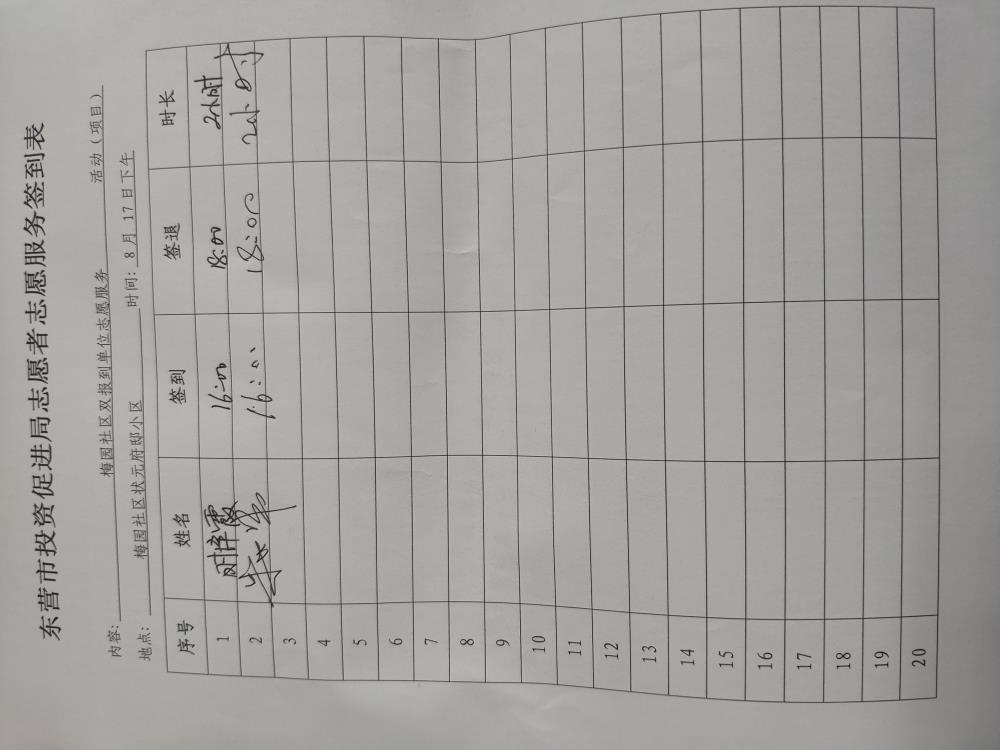 东营市投资促进局志愿者志愿服务签到表
内容: 梅园社区双报到单位志愿服务 活动（项目）
地点: 梅园社区状元府邸小区 时间: 8月17日下午
序号 姓名 签到 签退 时长
1 16:00 18:00 2小时
2 16:00 18:00 2小时
3
4
5
6
7
8
9
10
11
12
13
14
15
16
17
18
19
20